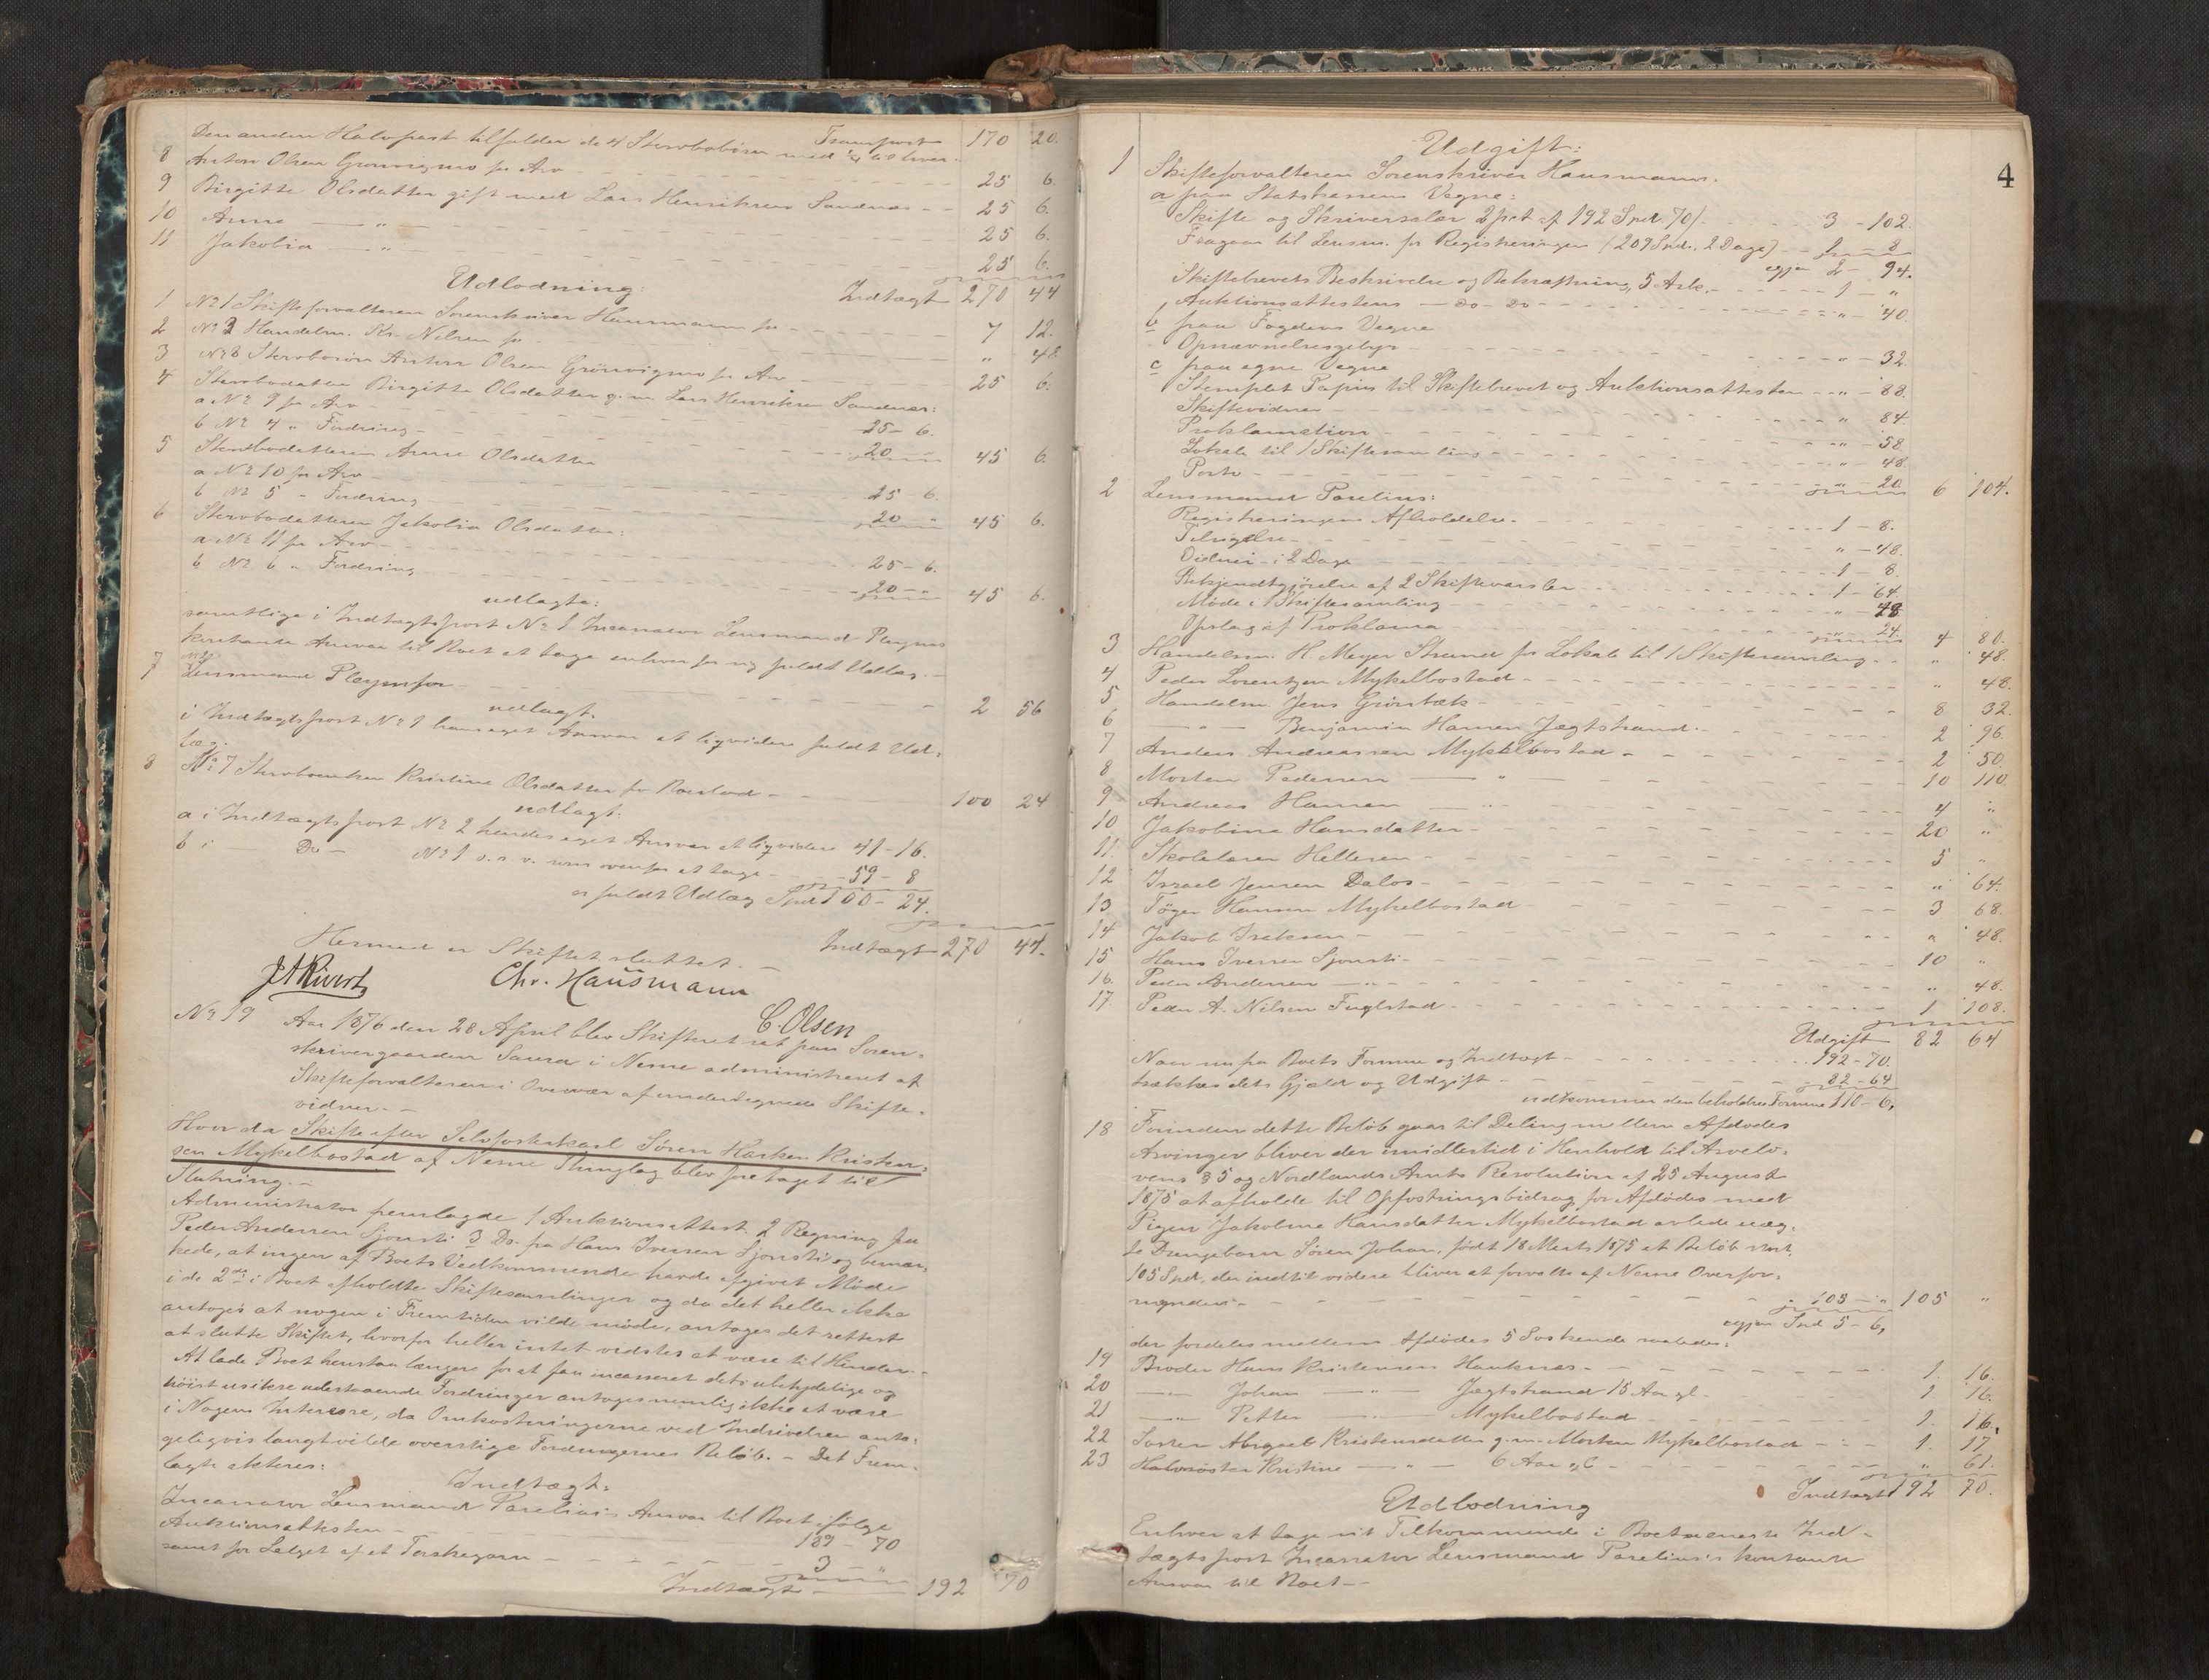 Transport 170 20.
Den anden Halvpart tilfalder de 4 Stervbobørn med ¼ til hver.
8 Anton Olsen Grønvigmo for Arv 25 6.
9 Birgitte Olsdatter gift med Lars Henriksen Sandnæs 25 6.
10 Anne — " — 25 6.
11 Jakobia — " — 25 6.
Indtægt 270 44
Udlodning:
1 No 1 Skifteforvalteren Sorenskriver Hansmann for 7 12.
2 No 2 Handelsm. Kr. Nilsen for " 48
3 No 8 Stervbosøn Anton Olsen Grönvigmo for Arv 25 6.
4 Stervbodatter Birgitte Olsdatter g. m. Lars Henriksen Sandnæs:
a No 9 for Arv 25 - 6.
b No 4 " Fordring 20 - " 45 6.
5 Stervbodatteren Anne Olsdatter
a No 10 for Arv 25 - 6.
b No 5 " Fordring 20 " 45 6.
6 Stervbodatteren Jakobia Olsdatter:
a No 11 for Arv 25 - 6.
b No 6 " Fordring 20 - " 45 6.
udlagte:
samtlige i Indtægtspost No 1 Incassator Lensmand Pleyms
kontante Ansvar til Boet at tage enhver for sig fuldt Udlæg.
7 Lensmand Pleym for 2 56
udlagt:
i Indtægtspost No 1 hans eget Ansvar at liqvidere fuldt Ud-
læg.
8 No 7 Stervboenken Kristine Olsdatter for Boeslod 100 24
udlagt:
a i Indtægtspost No 2 hendes eget Ansvar at liqvidere 41 - 16.
b i — Do — No 1 o. s. v. som ovenfor at tage 59 - 8
er fuldt Udlæg Spd 100 - 24.
Indtægt 270 44.
Hermed er Skiftet sluttet.
Chr. Hansmann
C. Olsen
No 19 Aar 1876 den 28 April blev Skifteret sat paa Soren-
skrivergaarden Saura i Nesne administreret af
Skifteforvalteren i Overvær af undertegnede Skifte-
vidner.
Hvor da Skifte efter Selvfosterkarl Søren Hartvn. Kristen-
sen Mykelbostad af Nesne Thinglag blev foretaget til
Slutning.
Administrator fremlagde 1 Auktionsattest 2 Regning fra
Peder Andersen Sjonsti 3 Do. fra Hans Iversen Sjonsti og bemær-
kede, at ingen af Boets Vedkommende havde afgivet Møde
i de 2de i Boet afholdte Skiftesamlinger og da det heller ikke
antoges at nogen i Fremtiden vilde møde, antoges det rettest
at slutte Skiftet, hvorfor heller intet vidstes at være til Hinder.
At lade Boet henstaa længere for at faa incasseret dets ubetydelige og
høist usikre udestaaende Fordringer antoges nemlig ikke at være
i Nogens Interesse, da Omkostningerne ved Inddrivelsen anta-
geligvis langt vilde overstige Fordringernes Beløb. - Det Frem-
lagte akteres:
Indtægt:
Incassator Lensmand Parelius's Ansvar til Boet ifølge
Auktionsattesten 189 - 70
samt for Salget af et Torskegarn 3 - "
Indtægt 192 70
4
Udgift:
1 Skifteforvalteren Sorenskriver Hansmann.
a paa Statskassens Vegne:
Skifte og Skriversalær 2 pct af 192 Spd. 70 3 - 102.
Fragaar til Lensm. for Registreringen (209 Spd., 2 Dage) 1 - 8
igjen 2 - 94.
Skiftebrevets Beskrivelse og Bekræftning, 5 Ark. 1 - "
Auktionsattestens — do - do — " - 40
b paa Fogdens Vegne
Opnævnelsesgebyr " - 32
c paa egne Vegne
Stemplet Papir til Skiftebrevet og Auktionsattesten " - 88.
Skiftevidner " 84
Proklamation " 58
Lokale til 1 Skiftesamling " 48.
Porto " 20.
6 104.
2 Lensmand Parelius:
Registreringens Afholdelse 1 - 8.
Tilsigelse " - 48.
Vidner i 2 Dage 1 - 8.
Bekjendtgjörelse af 2 Skiftevarsler 1 - 64.
Møde i 1 Skiftesamling " 48
Opslag af Proklama 24.
4 80.
3 Handelsm. H. Meyer Strand for Lokale til 1 Skiftesamling " 48.
4 Peder Lorentzen Mykelbostad " 48.
5 Handelsm. Jens Grønbæk 8 32
6 — " — Benjamin Hansen Jægtstrand 2 96.
7 Anders Andreassen Mykelbostad 2 50.
8 Morten Pedersen — " — 10 110.
9 Andreas Hansen — " — 4 "
10 Jakobine Hansdatter 20 "
11. Skolelærer Hellesen 5 "
12 Israel Jensen Dalos " 64.
13 Töger Hansen Mykelbostad 3 68.
14 Jakob Isaksen " 48.
15 Hans Iversen Sjonsti 10 "
16. Peder Andersen — " — " 48
17 Peder A. Nilsen Fuglstad 1 108.
Udgift 82 64
Naar nu fra Boets Formue og Indtægt 192 - 70.
trækkes dets Gjæld og Udgift 82 - 64
udkommer den beholdne Formue 110 - 6.
18 Forinden dette Beløb gaar til Deling mellem Afdødes
Arvinger bliver der imidlertid i Henhold til Arvelo-
vens § 5 og Nordlands Amts Resolution af 25 August
1875 at afholde til Opfostringsbidrag for Afdødes med
Pigen Jakobine Hansdatter Mykelbostad avlede uæg-
te Drengebarn Søren Johan, født 18 Marts 1875 et Beløb stort
105 Spd, der indtil videre bliver at forvalte af Nesne Overfor-
mynderi 105 - " 105 "
igjen Spd 5 - 6,
der fordeles mellem Afdødes 5 Søskende saaledes:
19 Broder Hans Kristensen Hauknæs 1. 16.
20 — " — Johan — " — Jægtstrand 15 Aar gl. 1 16.
21 — " — Petter — " — Mykelbostad 1. 16.
22 Søster Abigael Kristensdatter g. m. Morten Mykelbostad 1. 17.
23 Halvsøster Kristine — " — 6 Aar gl " 61.
Indtægt 192 70.
Udlodning
Enhver at tage sit Tilkommende i Boets eneste Ind-
tægtspost Incassator Lensmand Parelius's kontante
Ansvar til Boet